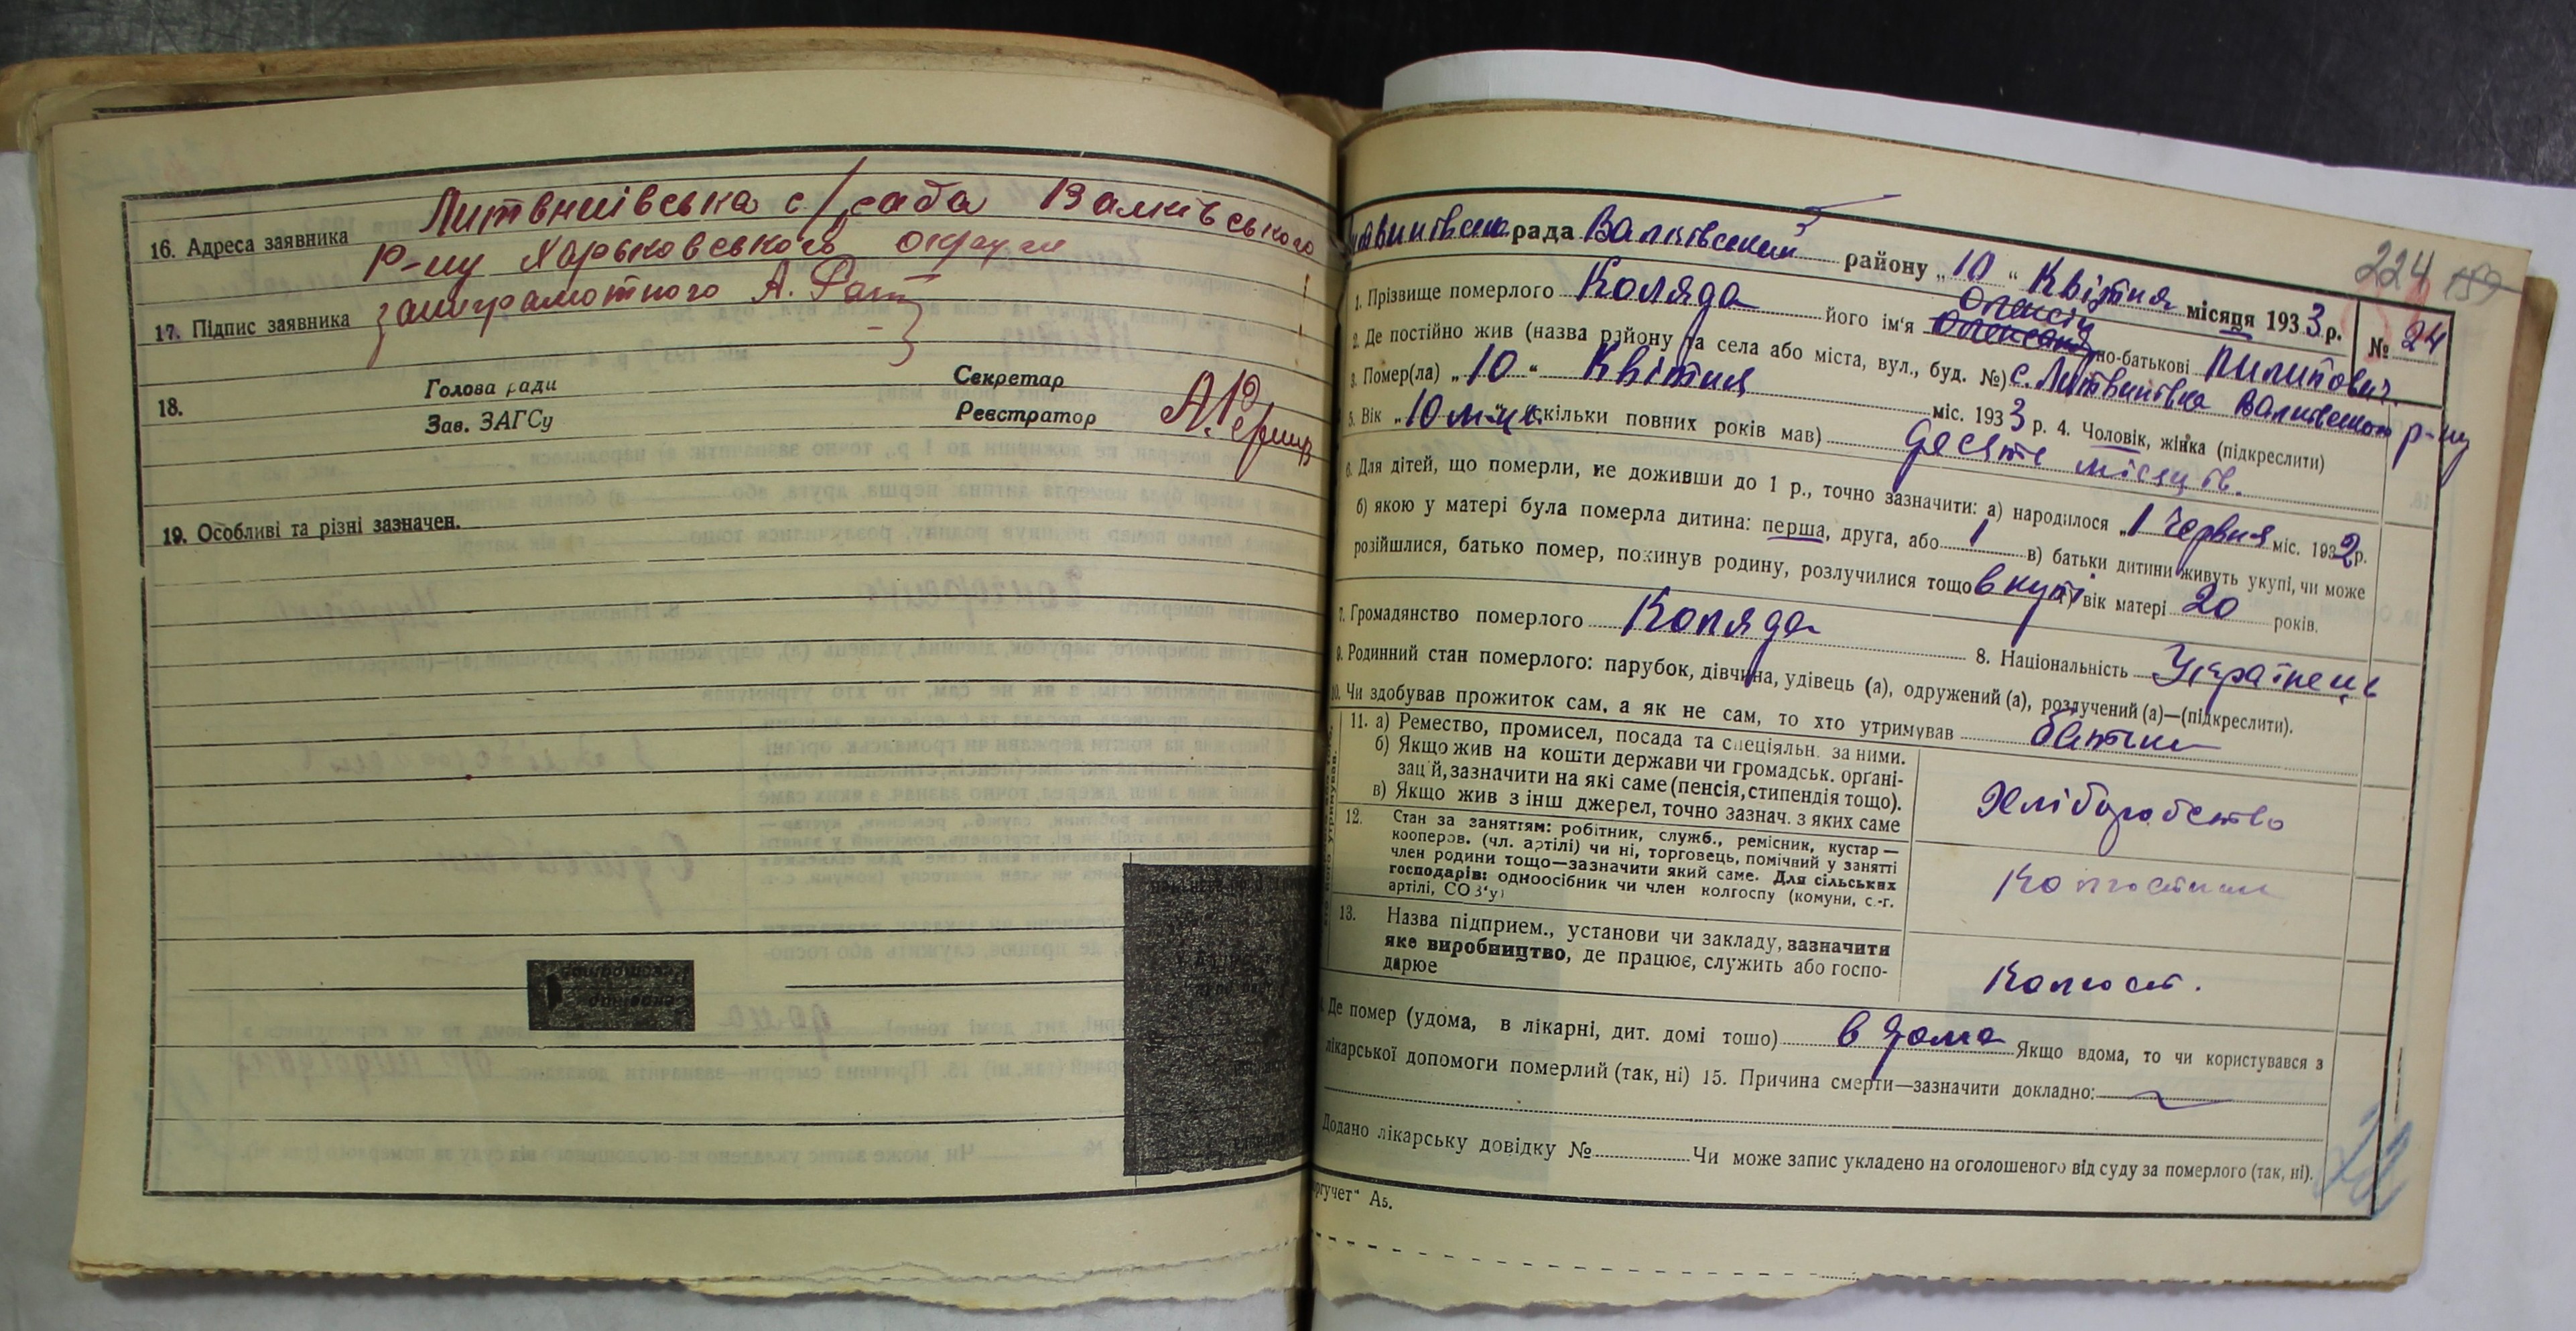 16. Адреса заявника Литвинівська с/рада Валківського
р-ну Харьковського округи
17. Підпис заявника заниграмотного А.
18. Голова ради Секретар
Зав. ЗАГСу Реєстратор
19. Особливі та різні зазначен.
224 159
рада Валківський району „10“ Квітня місяця 1933 р. № 24
1. Прізвище померлого Коляда його ім'я Олексій Олександр по-батькові Пилипович.
2. Де постійно жив (назва району та села або міста, вул., буд. №) с. Литвинівка Валківського р-ну
3. Помер(ла) „10“ Квітня міс. 1933 р. 4. Чоловік, жінка (підкреслити)
5. Вік „10 м-ців“ (скільки повних років мав) десять місяців.
6. Для дітей, що померли, не доживши до 1 р., точно зазначити: а) народилося „1 Червня міс. 1932 р.
б) якою у матері була померла дитина: перша, друга, або 1 в) батьки дитини живуть укупі, чи може
розійшлися, батько помер, покинув родину, розлучилися тощо в купі г) вік матері 20 років.
7. Громадянство померлого Коляда 8. Національність Українець
9. Родинний стан померлого: парубок, дівчина, удівець (а), одружений (а), розлучений (а)—(підкреслити).
10. Чи здобував прожиток сам, а як не сам, то хто утримував батьки
11. а) Ремество, промисел, посада та спеціяльн. за ними.
б) Якщо жив на кошти держави чи громадськ. орґані-
зацій, зазначити на які саме (пенсія, стипендія тощо).
в) Якщо жив з інш джерел, точно зазнач. з яких саме
Хліборобство
12. Стан за заняттям: робітник, служб., ремісник, кустар—
кооперов. (чл. артілі) чи ні, торговець, помічний у занятті
член родини тощо—зазначити який саме. Для сільських
господарів: одноосібник чи член колгоспу (комуни, с.-г.
артілі, СОЗ'у)
Колгоспник
13. Назва підприєм., установи чи закладу, зазначити
яке виробництво, де працює, служить або госпо-
дарює
Колгосп.
Де помер (удома, в лікарні, дит. домі тощо) в дома Якщо вдома, то чи користувався з
лікарської допомоги померлий (так, ні) 15. Причина смерти—зазначити докладно:
Додано лікарську довідку № Чи може запис укладено на оголошеного від суду за померлого (так, ні).
А5.